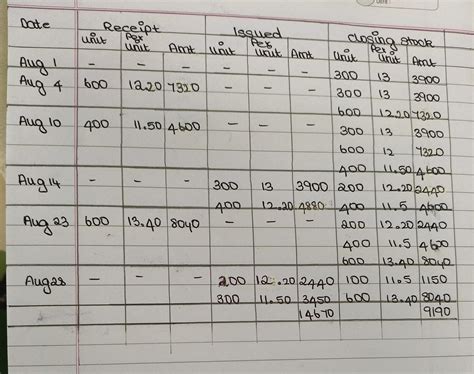 Date Receipt Issued Closing stock
unit Per unit Amt unit Per unit Amt unit Per unit Amt
Aug 1 - - - - - - 300 13 3900
Aug 4 600 12.20 7320 - - - 300 13 3900
600 12.20 7320
Aug 10 400 11.50 4600 - - - 300 13 3900
600 12 7320
400 11.50 4600
Aug 14 - - - 300 13 3900 200 12.20 2440
400 12.20 4880 400 11.5 4600
Aug 23 600 13.40 8040 - - - 200 12.20 2440
400 11.5 4600
600 13.40 8040
Aug 28 - - - 200 12.20 2440 100 11.5 1150
300 11.50 3450 600 13.40 8040
14670 9190